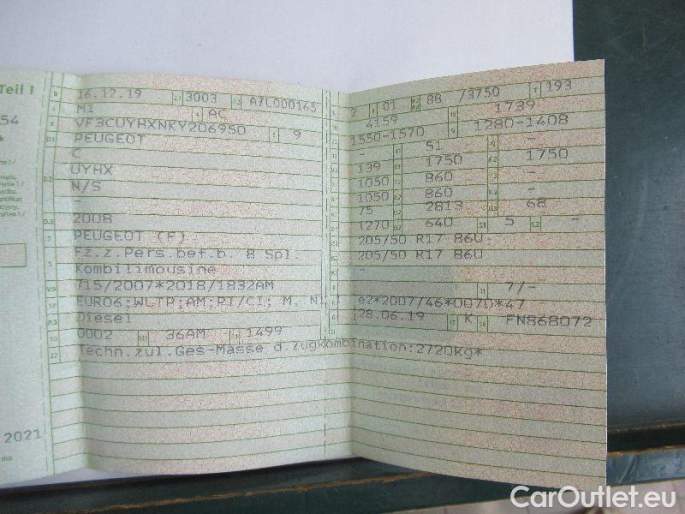 Teil I
16.12.19 3003 A7L000165
M1 AC
VF3CUYHXNKY206950 9
PEUGEOT
C
UYHX
N/S
-
2008
PEUGEOT (F)
Fz.z.Pers.bef.b. 8 Spl.
Kombilimousine
715/2007*2018/1832AM
EURO6;WLTP;AM;PI/CI; M, N1 I
Diesel
0002 36AM 1499
Techn.zul.Ges-Masse d.Zugkombination:2720kg*
2 01 88 /3750 193
4159 1739
1550-1570 1280-1408
- 51 -
139 1750 1750
1050 860 -
1050 860 -
75 2813 68
1270 640 5 -
205/50 R17 86U
205/50 R17 86U
-
7/-
e2*2007/46*0070*47
28.06.19 K FN868072
54
2021
CarOutlet.eu